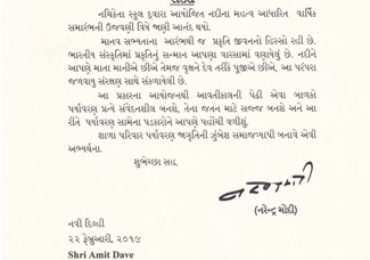 સંદેશ
નચિકેતા સ્કુલ દ્વારા આયોજિત નદીના મહત્વ આધારિત વાર્ષિક
સમારંભની ઉજવણી વિષે જાણી આનંદ થયો.
માનવ સભ્યતાના આરંભથી જ પ્રકૃતિ જીવનનો હિસ્સો રહી છે.
ભારતીય સંસ્કૃતિમાં પ્રકૃતિનું સન્માન આપણા વારસામાં વણાયેલું છે. નદીને
આપણે માતા માનીએ છીએ તેમજ વૃક્ષને દેવ તરીકે પૂજીએ છીએ, આ પરંપરા
જળવાયુ સંરક્ષણ સાથે સંકળાયેલી છે.
આ પ્રકારના આયોજનથી આવતીકાલની પેઢી એવા બાળકો
પર્યાવરણ પ્રત્યે સંવેદનશીલ બનશે, તેના જતન માટે સજ્જ બનશે અને આ
રીતે પર્યાવરણ સામેના પડકારોને આપણે પહોંચી વળીશું.
શાળા પરિવાર પર્યાવરણ જાગૃતિની ઝુંબેશ સમાજવ્યાપી બનાવે એવી
અભ્યર્થના.
શુભેચ્છા સહ.
(નરેન્દ્ર મોદી)
નવી દિલ્હી
૨૨ ફેબ્રુઆરી, ૨૦૧૭
Shri Amit Dave